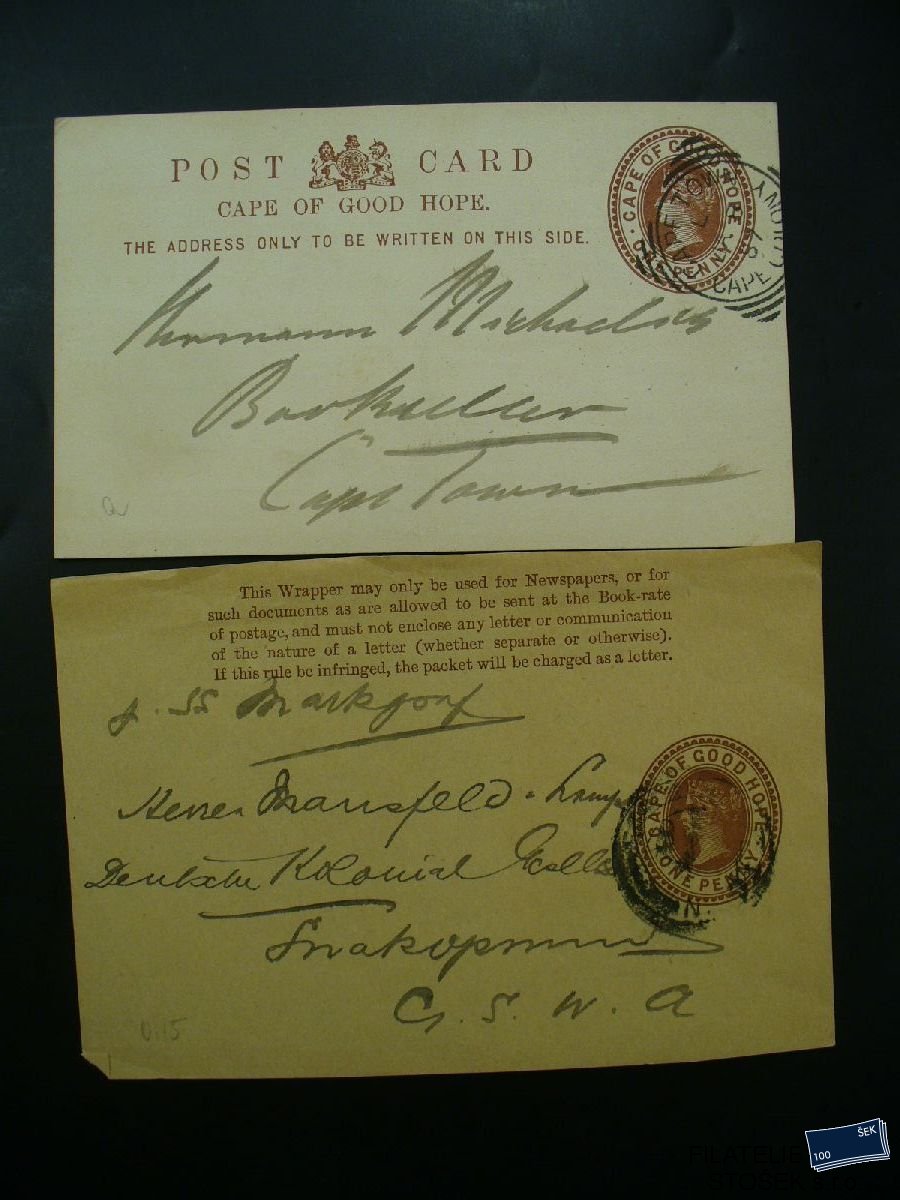 POST CARD
CAPE OF GOOD HOPE.
THE ADDRESS ONLY TO BE WRITTEN ON THIS SIDE.
CAPE OF GOOD HOPE
ONE PENNY.
CAPE TOWN
CAPE COLONY
97
Hermann Michaelis
Bookseller
Cape Town
a
This Wrapper may only be used for Newspapers, or for
such documents as are allowed to be sent at the Book-rate
of postage, and must not enclose any letter or communication
of the nature of a letter (whether separate or otherwise).
If this rule be infringed, the packet will be charged as a letter.
p. SS Markgraf
Herrn Mansfeld
CAPE OF GOOD HOPE
ONE PENNY
Deutsche Kolonial
Swakopmund
G. S. W. A
0.15
100 ŠEK
FILATELIE